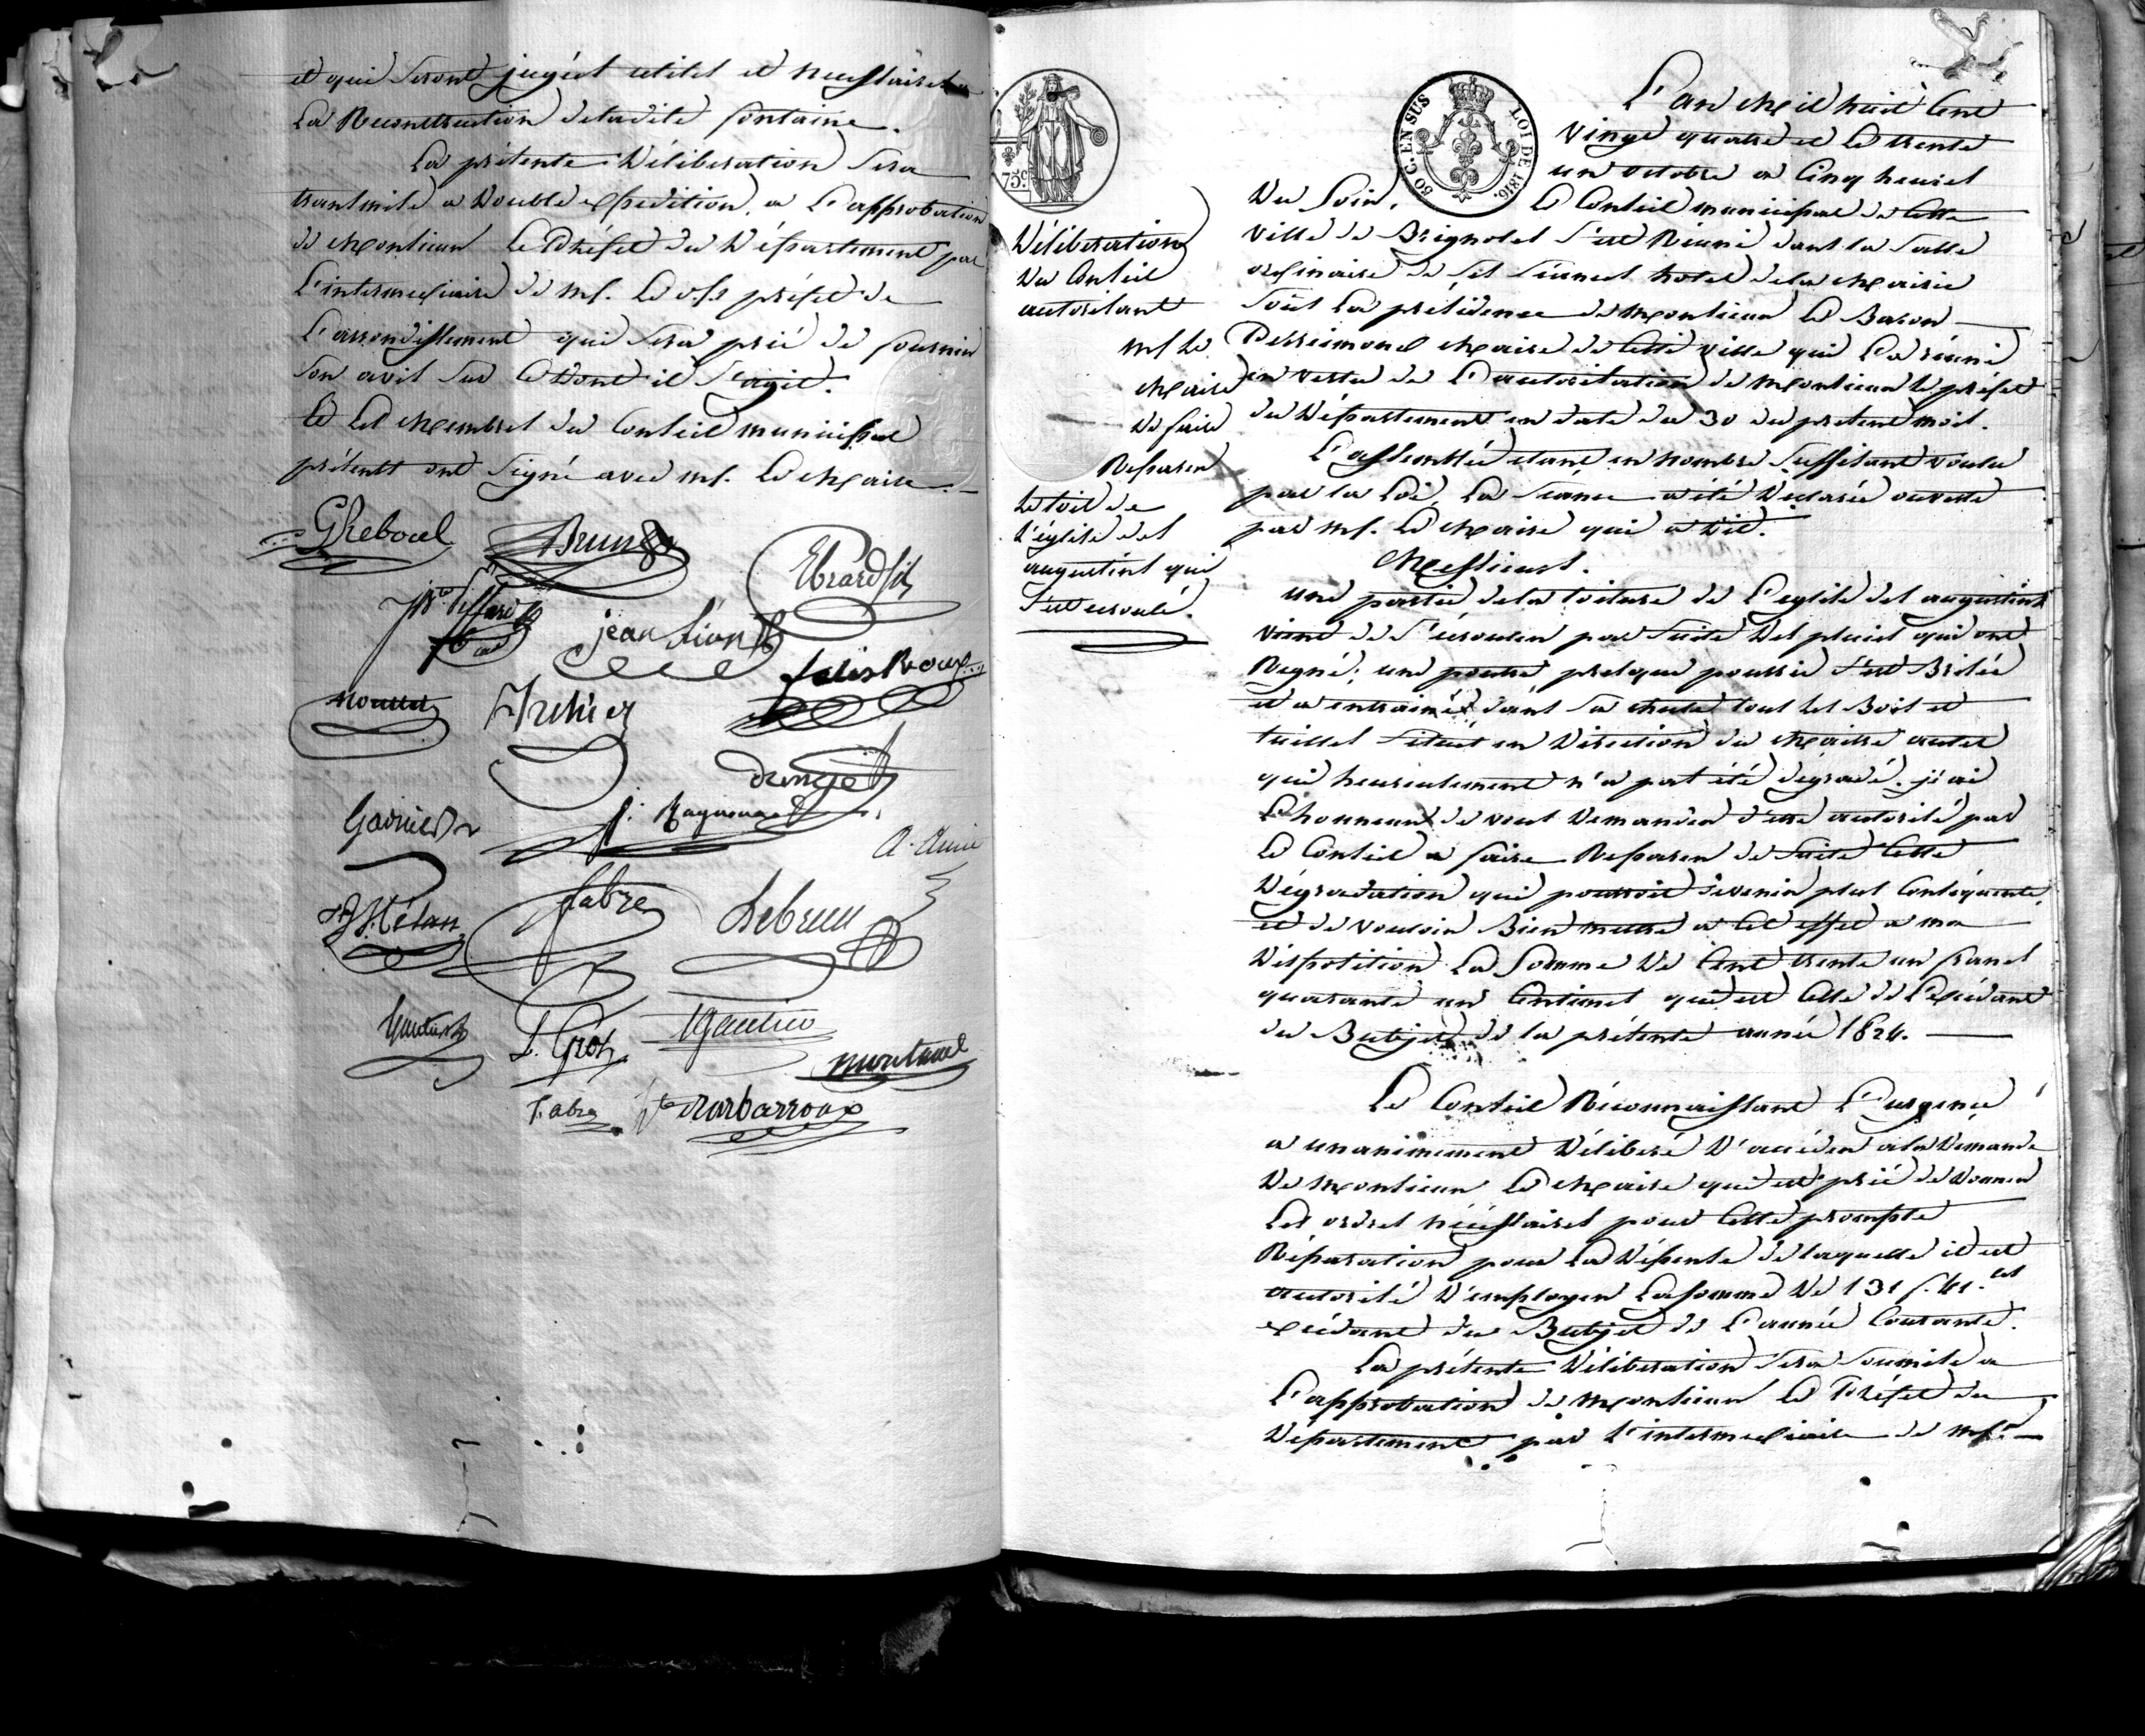 et qui seront jugées utiles et nécessaires a
La Reconstruction deladite fontaine.
La présente Déliberation sera
transmise a Double expedition, a L'approbation
de Monsieur Le Préfet du Département par
L'intermédiaire de Mr. Le s/s préfet de
L'arrondissement qui sera prié de fournir
son avis sur ce dont il s'agit.
Et Les Membres du Conseil municipal
présents ont signé avec Mr. Le Maire.
GReboul
Brun
Ebrard fils
jean Lion
felix Roux
Nouvel
Garnier
J. Raynaud
A. Amic
Fabre
Lebrun
L. Gros
Gautier
Montaud
Fabre
Barbarroux
75c
50 C. EN SUS
LOI DE 1816.
Déliberation
Du Conseil
autorisant
Mr Le
Maire
De faire
Reparer
le toit de
l'église des
augustins qui
s'est ecroulé.
L'an Mil huit Cent
vingt quatre et Le trente
un octobre a Cinq heures
Du Soir, Le Conseil municipal de Cette
ville de Brignoles s'est Réuni dans la Salle
ordinaire de ses séances hotel dela Mairie
sous La présidence de Monsieur Le Baron
Desseimond Maire de Cette ville qui L'a réuni
en vertu de L'autorisation de Monsieur le préfet
du Département en date du 30 du present mois.
L'assemblée etant en nombre suffisant voulu
par la Loi, La séance a été Déclarée ouverte
par Mr. Le Maire qui a Dit.
Messieurs.
une partie dela toiture de L'eglise des augustins
vient de s'écrouler par suite Des pluies qui ont
Regné; une poutre presque pourrie s'est Brisée
et a entrainé dans sa chute tous les Bois et
tuilles situés en Direction du Maitre autel
qui heureusement n'a pas été dégradé. j'ai
L'honneur de vous Demander d'etre autorisé par
Le Conseil a faire Reparer de suite Cette
Dégradation qui pourroit devenir plus Conséquente,
et de vouloir Bien mettre a Cet effet a ma
Disposition La Somme De Cent trente un francs
quarante un Centimes qui est Celle de L'excédant
du Butjet de la présente année 1824.
Le Conseil Réconnaissant L'urgence
a unanimement Déliberé D'accéder a la Demande
De Monsieur Le Maire qui est prié de Donner
Les ordres nécessaires pour Cette prompte
Réparation pour La Dépense de laquelle il est
autorisé D'employer La somme De 131 f. 41. ces
excédant du Butjet de L'année Courante.
La présente Déliberation sera soumise a
L'approbation de Monsieur Le Préfet du
Département par L'intermédiaire de Mr.